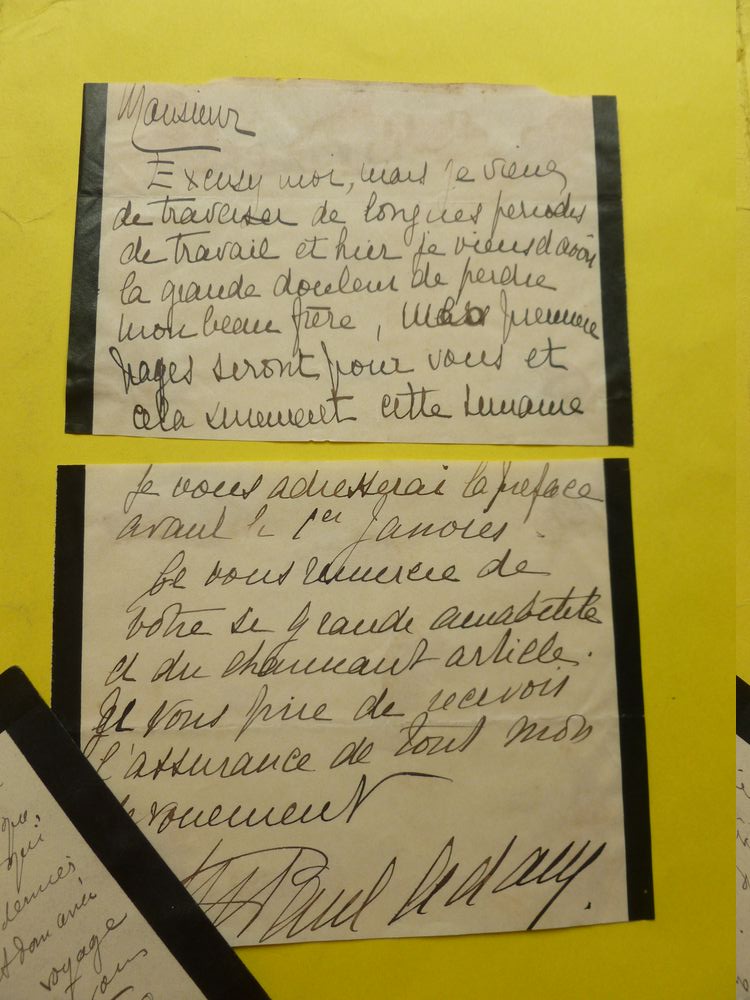 Monsieur
Excusez moi, mais je viens
de traverser de longues periodes
de travail et hier je viens d'avoir
la grande douleur de perdre
mon beau frère, mes premieres
pages seront pour vous et
cela surement cette semaine
Je vous adresserai la preface
avant le 1er Janvier.
Je vous remercie de
votre si grande amabilité
et du charmant article.
Je vous prie de recevoir
l'assurance de tout mon
devouement
Paul
qui
dernier
voyage
vous